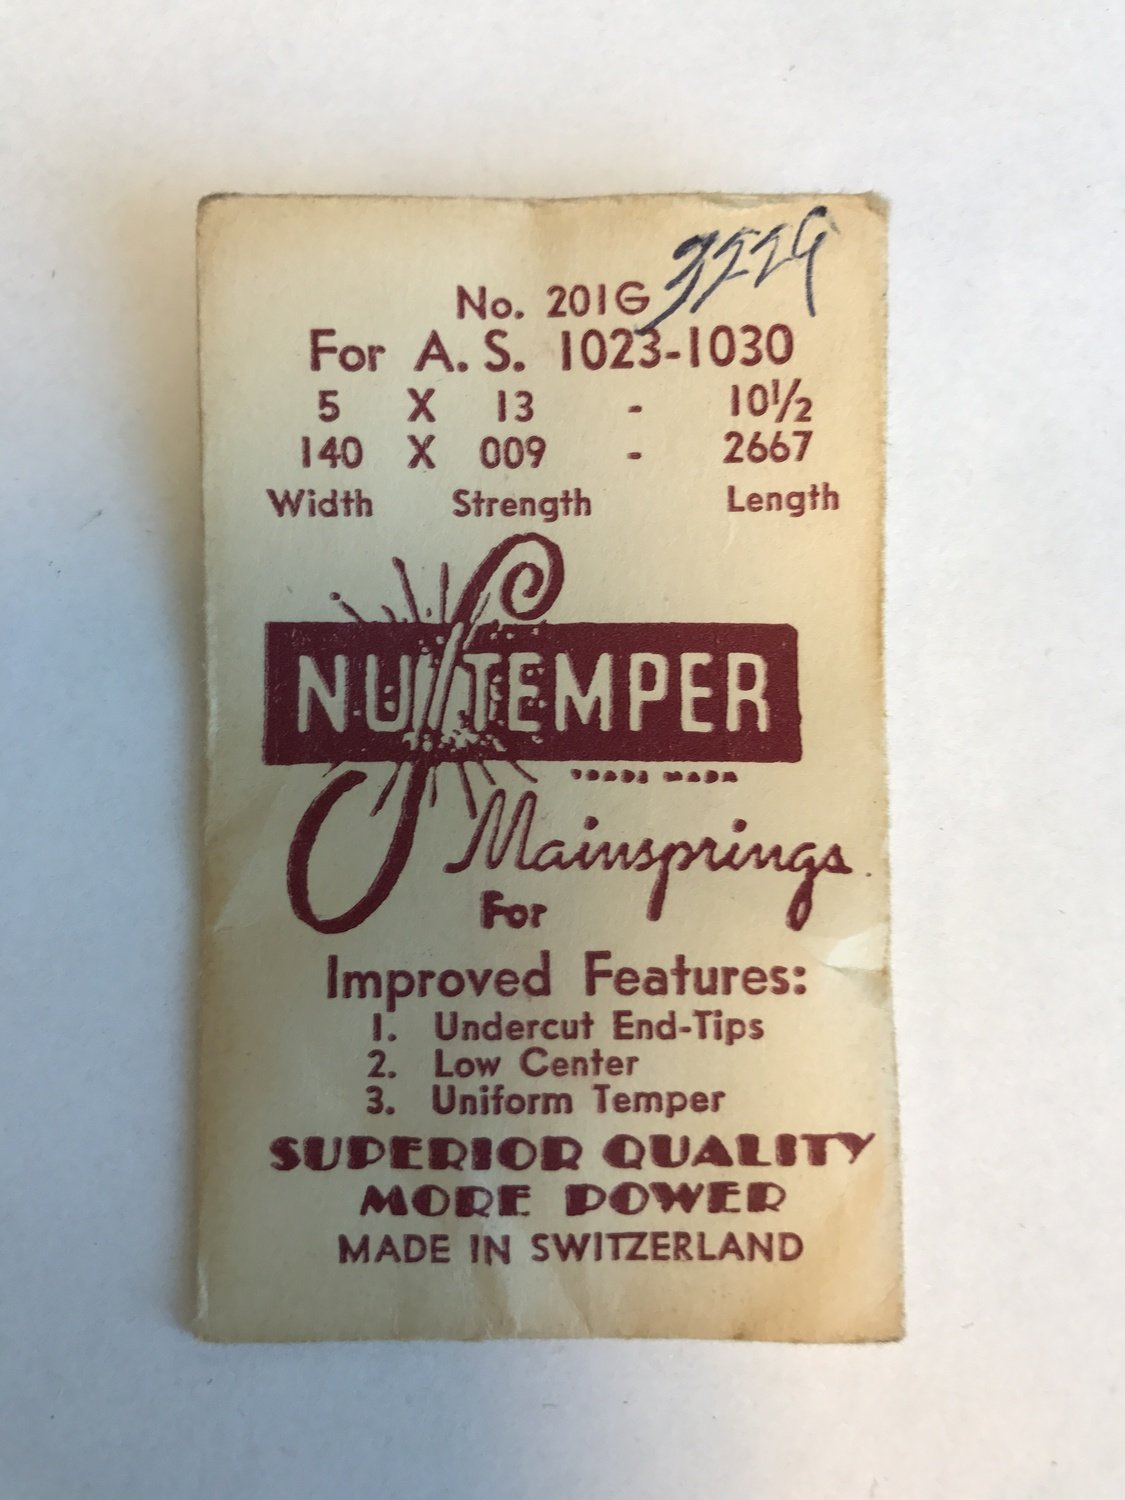 322G
No. 201G
For A. S. 1023-1030
5 X 13 - 10½
140 X 009 - 2667
Width Strength Length
NU-TEMPER
TRADE MARK
Mainsprings
For
Improved Features:
1. Undercut End-Tips
2. Low Center
3. Uniform Temper
SUPERIOR QUALITY
MORE POWER
MADE IN SWITZERLAND